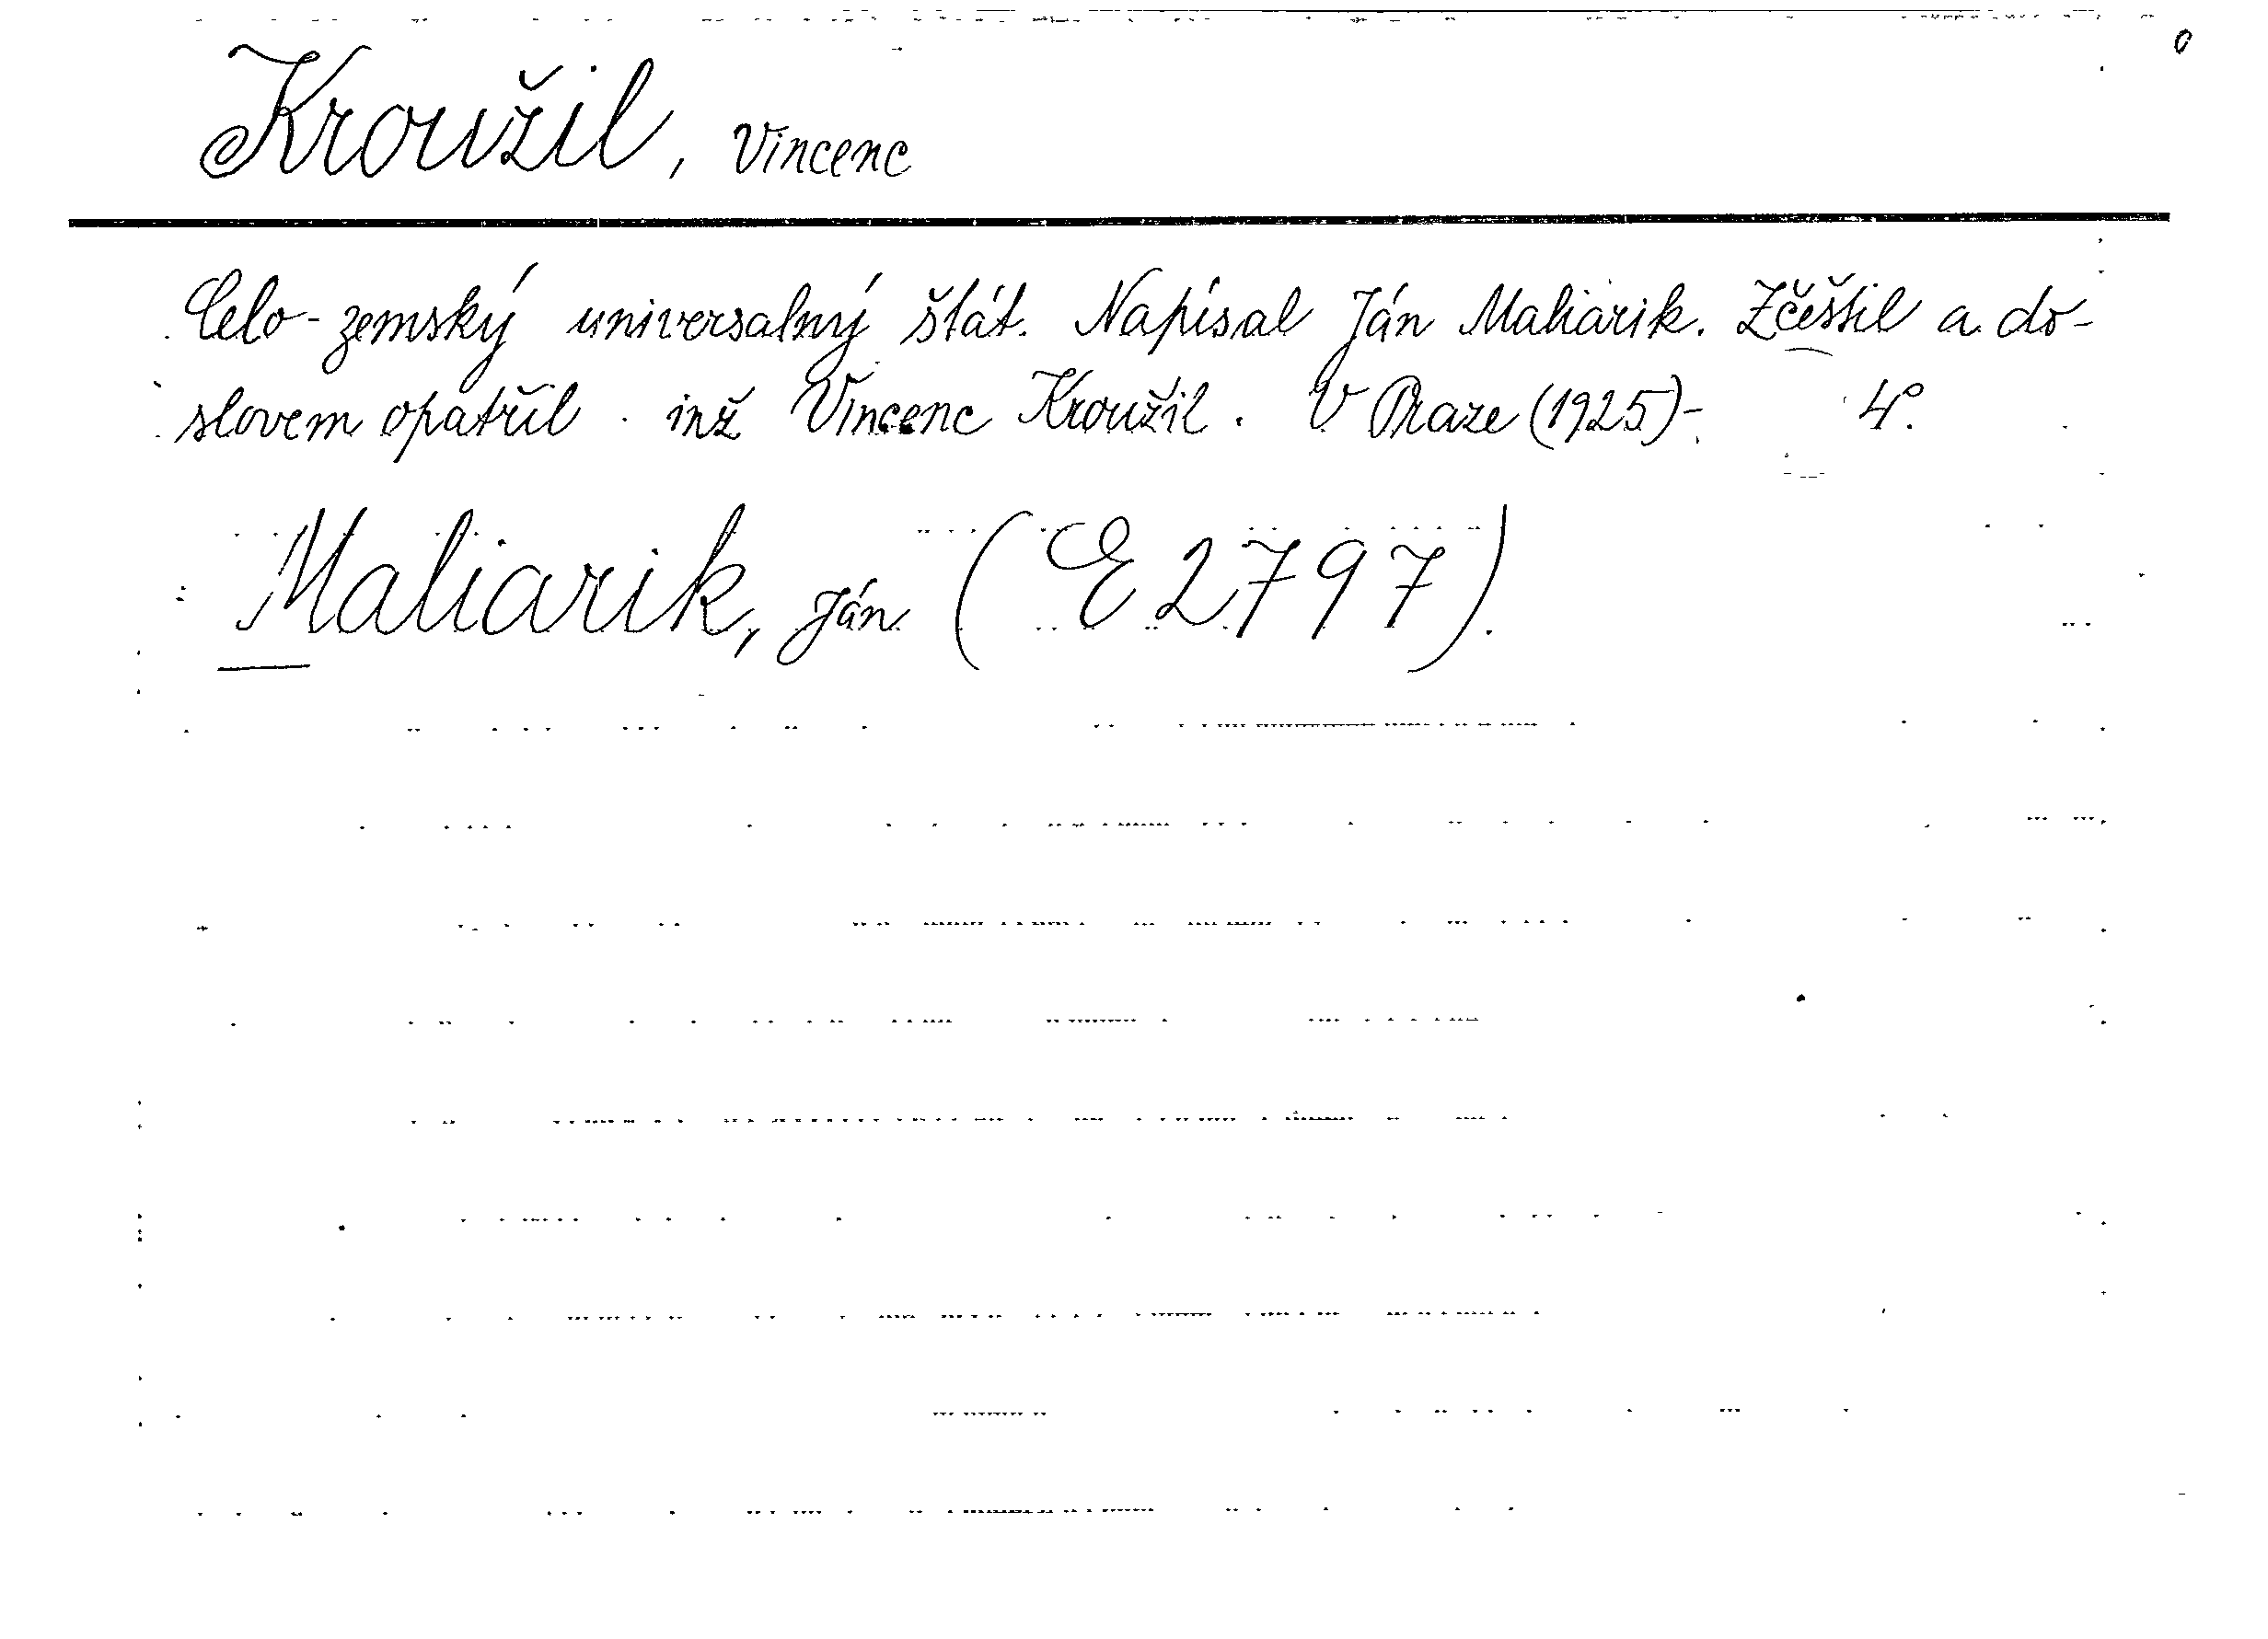 Kroužil, Vincenc
Celo-zemský universalný štát. Napísal Ján Maliarik. Zčeštil a do-
slovem opatřil inž Vincenc Kroužil. V Praze (1925)-. 4°.
Maliarik, Ján (E 2797).